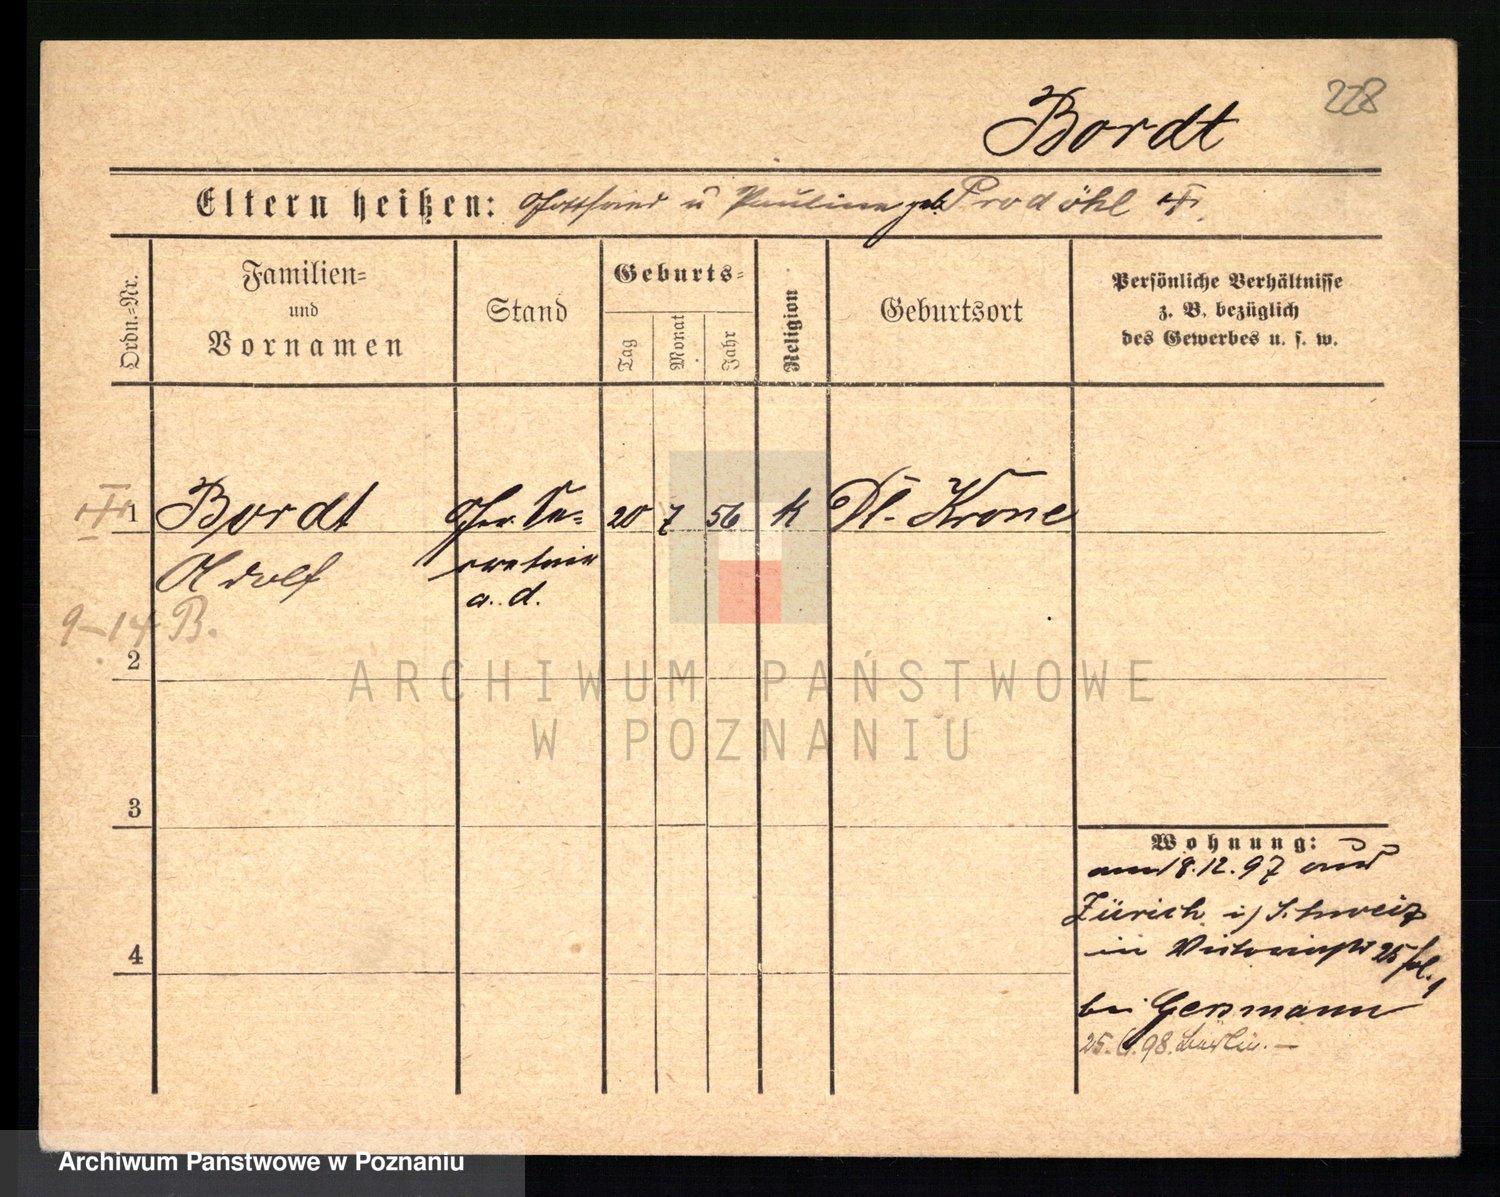 228
Bordt
Eltern heißen: Gottfried u Pauline geb. Prodöhl
Ordn.=Nr.
Familien=
und
Vornamen
Stand
Geburts=
Tag
Monat
Jahr
Religion
Geburtsort
Persönliche Verhältnisse
z. B. bezüglich
des Gewerbes u. s. w.
1 Bordt Ger. Se= 20 7 56 k Dt. Krone
Adolf kretair
a. d.
9-14 B.
2
3
4
Wohnung:
am 18.12.97 aus
Zürich i/ Schweiz
in Victoriastr 25
bei Gensmann
25.6.98. Berlin. —
ARCHIWUM PAŃSTWOWE
W POZNANIU
Archiwum Państwowe w Poznaniu